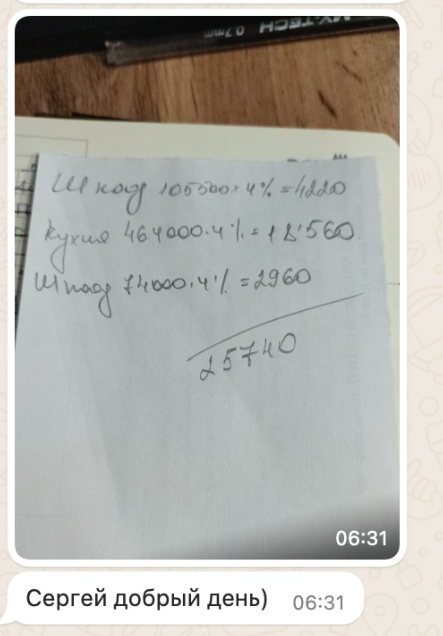 MY-TECH 0.7mm
Шкаф 105500·4%=4220
Кухня 464000·4%=18'560.
Шкаф 74000·4%=2960
25740
06:31
Сергей добрый день)
06:31